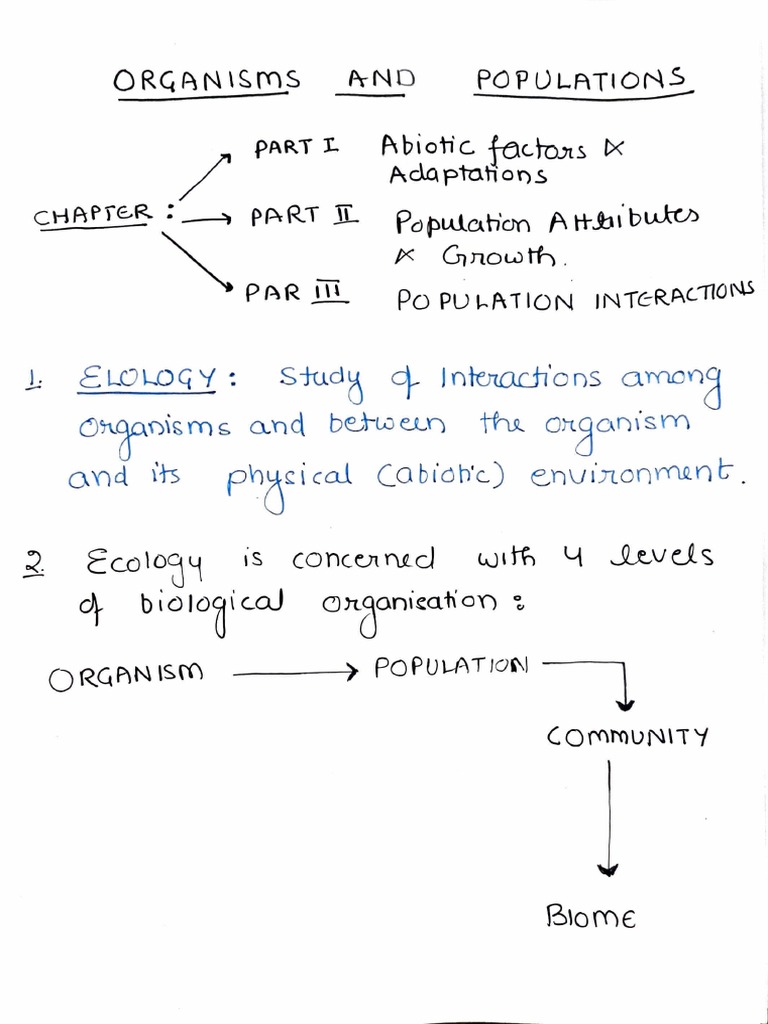 ORGANISMS AND POPULATIONS
PART I Abiotic factors &
Adaptations
CHAPTER : PART II Population Attributes
& Growth.
PAR III POPULATION INTERACTIONS
1. ELOLOGY : Study of Interactions among
organisms and between the organism
and its physical (abiotic) environment.
2. Ecology is concerned with 4 levels
of biological organisation :
ORGANISM POPULATION
COMMUNITY
BIOME